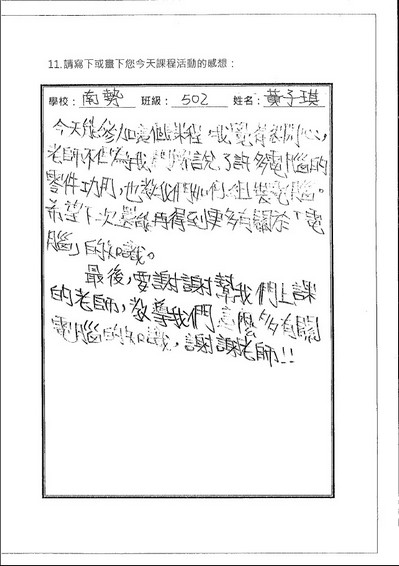 11.請寫下或畫下您今天課程活動的感想：
學校：南勢 班級：502 姓名：黃子琪
今天能參加這個課程，我覺得很開心，
老師不但為我們解說了許多電腦的
零件功用，也教我們如何組裝電腦。
希望下次能再得到更多有關於「電
腦」的知識。
最後，要謝謝幫我們上課
的老師，教導我們這麼多有關
電腦的知識，謝謝老師!!